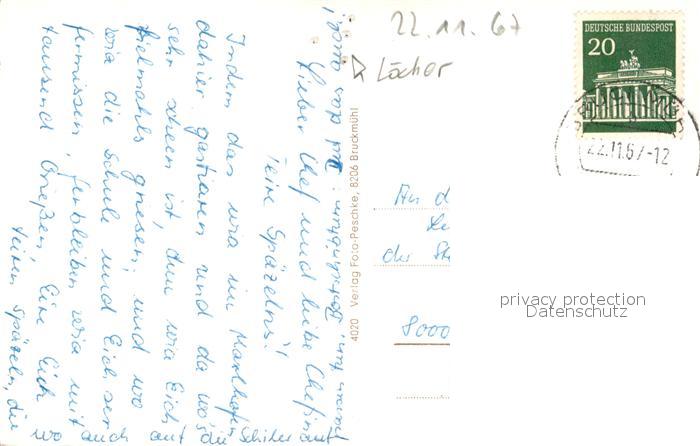 22.11.67
Löcher
DEUTSCHE BUNDESPOST
20
22.11.67-12
Lieber Chef und liebe Chefin
eire Späzelns!
Indem das wia im Marlhofen
dahier gastiaren und da wo's
sehr scheen ist, dun wia Eich
fielmahls griesen; und wo
wia die Schule und Eich ser
fermissen, ferbleiben wia mit
tausend Grießen, Eire Eich
teiren Späzeln, die
wo auch auf die Schiler auf
4020 Verlag Foto-Peschke, 8206 Bruckmühl
An d
der
8000
privacy protection
Datenschutz